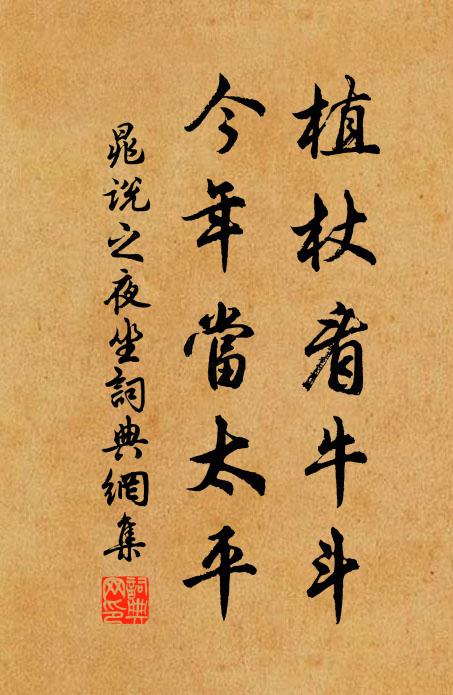 植杖看牛斗
今年當太平
晁說之夜坐詞典網集
詞典网印